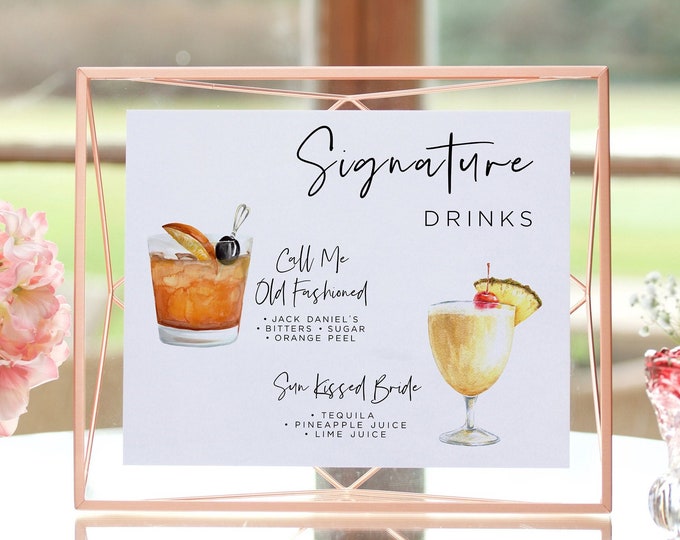 Signature
DRINKS
Call Me
Old Fashioned
• JACK DANIEL'S
• BITTERS • SUGAR
• ORANGE PEEL
Sun Kissed Bride
• TEQUILA
• PINEAPPLE JUICE
• LIME JUICE